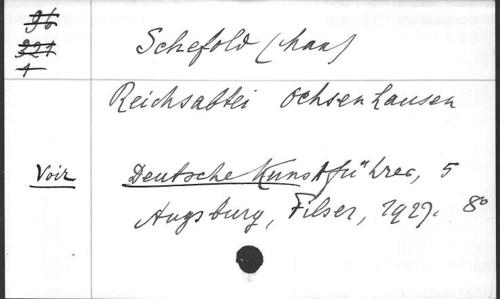 96
321
1
Schefold (Max)
Reichsabtei Ochsenhausen
Voir Deutsche Kunstführer, 5
Augsburg, Filser, 1927. 8°